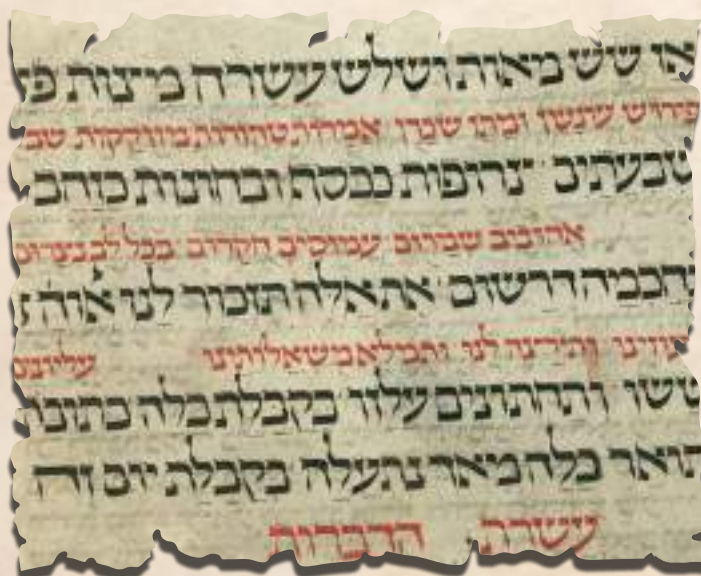 או שש מאות ושלש עשרה מיצות
פירוש עונשן ומתן שכרן אמרות טהורות מזוקקות
שבעתים צרופות ככסף ובחונות כזהב
אהובים שמרום עמוסים חקרום בכל לב נצרום
דרשום את אלה תזכור לנו
לנו ותמלא משאלותינו
ששו ותחתונים עלזו בקבלת כלה
תואר כלה מאד נתעלה בקבלת יום זה
עשרת הדברות